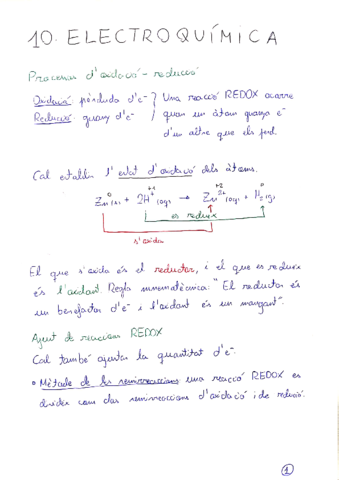 10. ELECTROQUÍMICA
Processos d'oxidació - reducció
Oxidació: pèrdua d'e⁻ } Una reacció REDOX ocorre
Reducció: guany d'e⁻ } quan un àtom guanya e⁻
d'un altre que els perd.
Cal establir l'estat d'oxidació dels àtoms.
0 +1 +2 0
Zn(s) + 2H⁺(aq) → Zn²⁺(aq) + H₂(g)
es redueix
s'oxida
El que s'oxida és el reductor, i el que es redueix
és l'oxidant. Regla mnemotècnica: "El reductor és
un benefactor d'e⁻ i l'oxidant és un mangant".
Ajust de reaccions REDOX
Cal també ajustar la quantitat d'e⁻.
• Mètode de les semireaccions una reacció REDOX es
divideix com dos semireaccions d'oxidació i de reducció.
1